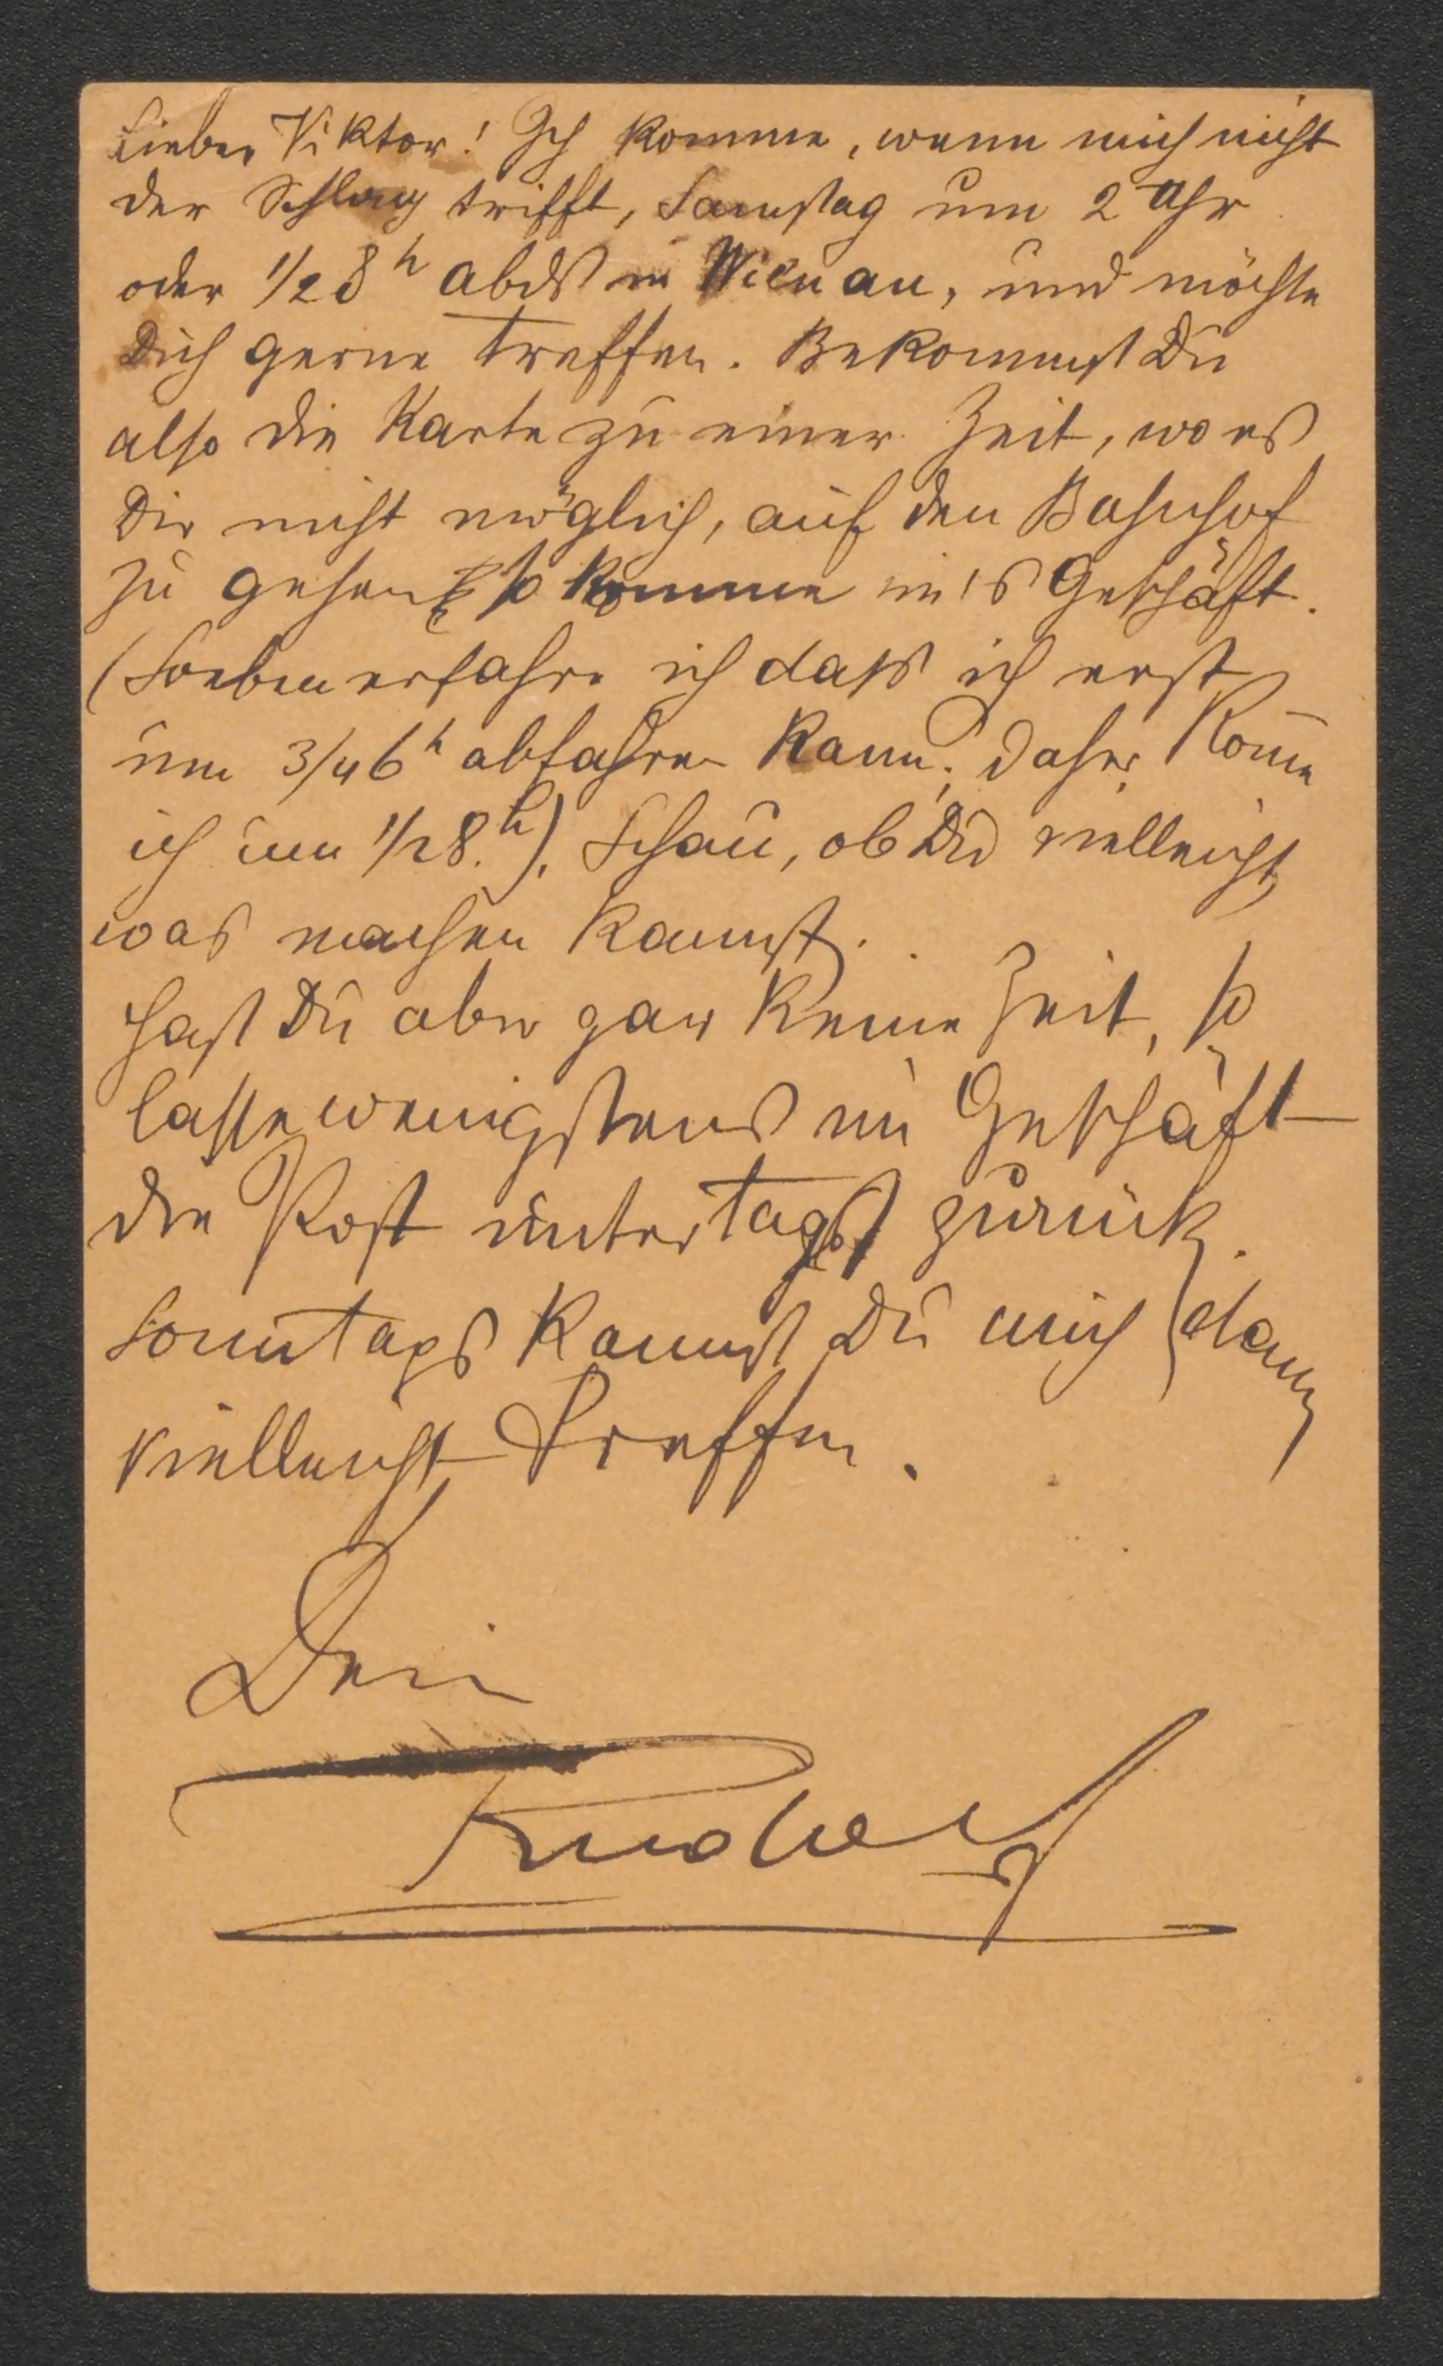 Lieber Viktor! Ich komme, wenn mich nicht
der Schlag trifft, Samstag um 2 Uhr
oder 1/2 8h abds in Wien an, und möchte
Dich gerne treffen. Bekommst Du
also die Karte zu einer Zeit, wo es
Dir nicht möglich, auf den Bahnhof
zu gehen, so komme in's Geschäft.
(Soeben erfahre ich dass ich erst
um 3/4 6h abfahren kann; daher kome
ich um 1/2 8.h). Schau, ob Du vielleicht
was machen kannst.
Hast Du aber gar keine Zeit, so
lasse wenigstens im Geschäft
die Post untertags zurück.
Sonntags kannst Du mich dann
vielleicht treffen.
Dein